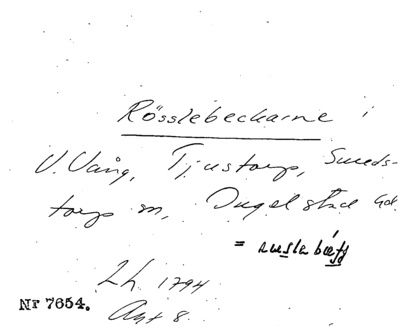 Rösslebeckarne i
V. Vång, Tjustorp, Smeds-
torp m, Ingelstad hd.
=
Lh 1794
Nr 7654. Akt 8.